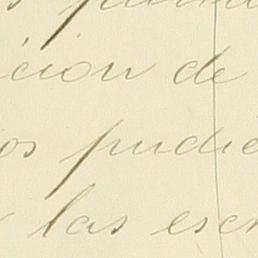 ición de
os pudie
las escr